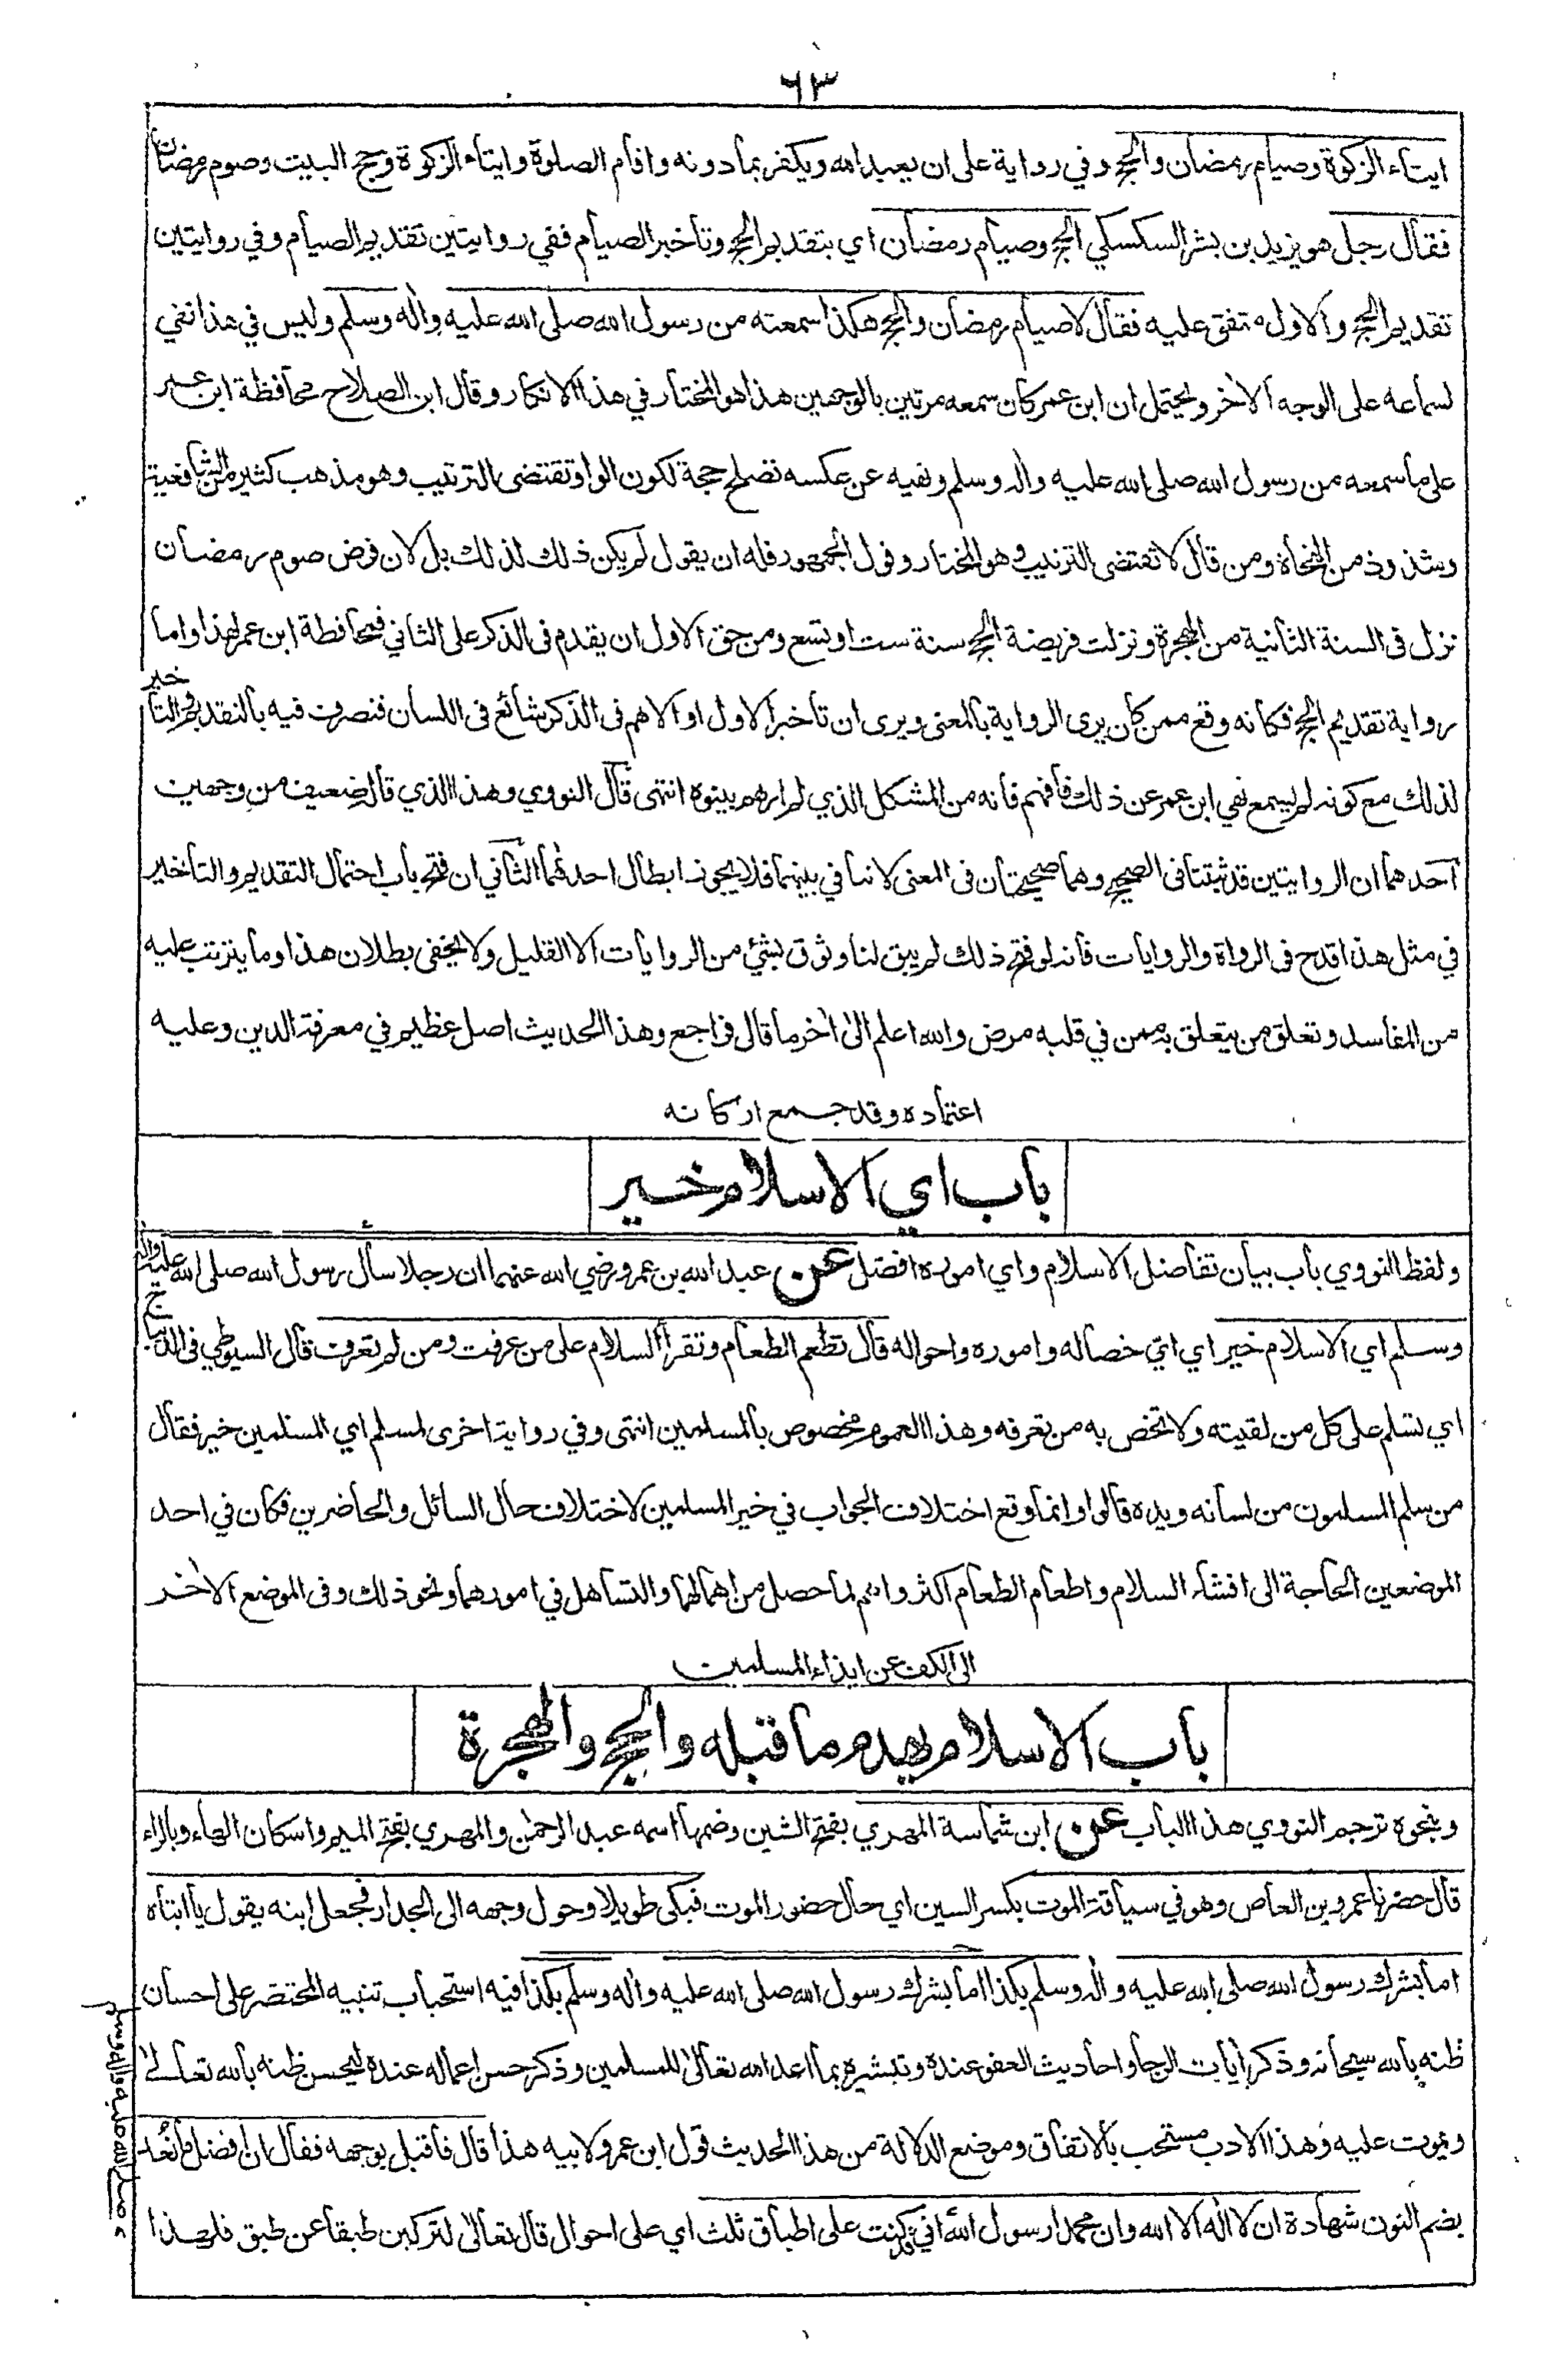 ٦٣
ايتاء الزكوة وصيام رمضان والحج وفي رواية على ان يعبد الله ويكفر بما دونه واقام الصلوة وايتاء الزكوة وحج البيت وصوم رمضان
فقال رجل هو يزيد بن بشر السكسكي الحج وصيام رمضان اي بتقديم الحج وتاخير الصيام ففي روايتين تقديم الصيام وفي روايتين
تقديم الحج والاول متفق عليه فقال لا صيام رمضان والحج هكذا سمعته من رسول الله صلى الله عليه واله وسلم وليس في هذا نفي
لسماعه على الوجه الاخر ويحتمل ان ابن عمر كان سمعه مرتين بالوجهين هذا هو المختار في هذا الانكار وقال ابن الصلاح محافظة ابن عمر
على ما سمعه من رسول الله صلى الله عليه واله وسلم ونفيه عن عكسه تصلح حجة لكون الواو تقتضى الترتيب وهو مذهب كثير من الشافعية
وشذوذ من النحاة ومن قال لا تقتضى الترتيب وهو المختار وقول الجمهور فله ان يقول لم يكن ذلك لذلك بل لان فرض صوم رمضان
نزل فى السنة الثانية من الهجرة ونزلت فريضة الحج سنة ست او تسع ومن حق الاول ان يقدم فى الذكر على الثاني فمحافظة ابن عمر لهذا واما
رواية تقديم الحج فكانه وقع ممن كان يرى الرواية بالمعنى ويرى ان تاخير الاول او الاهم فى الذكر شائع فى اللسان فتصرف فيه بالتقديم والتاخير
لذلك مع كونه لم يسمع نهي ابن عمر عن ذلك فافهم فانه من المشكل الذي لم ارهم بينوه انتهى قال النووي وهذا الذي قال ضعيف من وجهين
احدهما ان الروايتين قد ثبتتا فى الصحيح وهما صحيحتان فى المعنى لا تنافي بينهما فلا يجوز ابطال احدهما الثاني ان فتح باب احتمال التقديم والتاخير
في مثل هذا قدح فى الرواة والروايات فانه لو فتح ذلك لم يبق لنا وثوق بشئ من الروايات الا القليل ولا يخفى بطلان هذا وما يترتب عليه
من المفاسد وتعلق من يتعلق به ممن في قلبه مرض والله اعلم الى اخر ما قال فراجع وهذا الحديث اصل عظيم في معرفة الدين وعليه
اعتماده وقد جمع اركانه
باب اي الاسلام خير
ولفظ النووي باب بيان تفاضل الاسلام واي اموره افضل عن عبد الله بن عمرو رضي الله عنهما ان رجلا سأل رسول الله صلى الله عليه واله
وسلم اي الاسلام خير اي اي خصاله واموره واحواله قال تطعم الطعام وتقرأ السلام على من عرفت ومن لم تعرف قال السيوطي فى الديباج
اي تسلم على كل من لقيته ولا تخص به من تعرفه وهذا العموم مخصوص بالمسلمين انتهى وفي رواية اخرى لمسلم اي المسلمين خير فقال
من سلم المسلمون من لسانه ويده قالوا وانما وقع اختلاف الجواب في خير المسلمين لاختلاف حال السائل والحاضرين فكان في احد
الموضعين الحاجة الى افشاء السلام واطعام الطعام اكثر واهم لما حصل من اهمالهما والتساهل في امورهما ونحو ذلك وفى الموضع الاخر
الى الكف عن ايذاء المسلمين
باب الاسلام يهدم ما قبله والحج والهجرة
وبنحوه ترجم النووي هذا الباب عن ابن شماسة المهري بفتح الشين وضمها اسمه عبد الرحمن والمهري بفتح الميم واسكان الهاء وبالراء
قال حضرنا عمرو بن العاص وهو في سياقة الموت بكسر السين اي حال حضور الموت فبكى طويلا وحول وجهه الى الجدار فجعل ابنه يقول يا ابتاه
اما بشرك رسول الله صلى الله عليه واله وسلم بكذا اما بشرك رسول الله صلى الله عليه واله وسلم بكذا فيه استحباب تنبيه المحتضر على احسان
ظنه بالله سبحانه وذكر ايات الرجا واحاديث العفو عنده وتبشيره بما اعد الله تعالى للمسلمين وذكر حسن اعماله عنده ليحسن ظنه بالله تعالى
ويموت عليه وهذا الادب مستحب بالاتفاق وموضع الدلالة من هذا الحديث قول ابن عمرو لابيه هذا قال فاقبل بوجهه فقال ان افضل ما نعد
بضم النون شهادة ان لا اله الا الله وان محمدا رسول الله اني قد كنت على اطباق ثلث اي على احوال قال تعالى لتركبن طبقا عن طبق فلهذا
صلى الله عليه واله وسلم